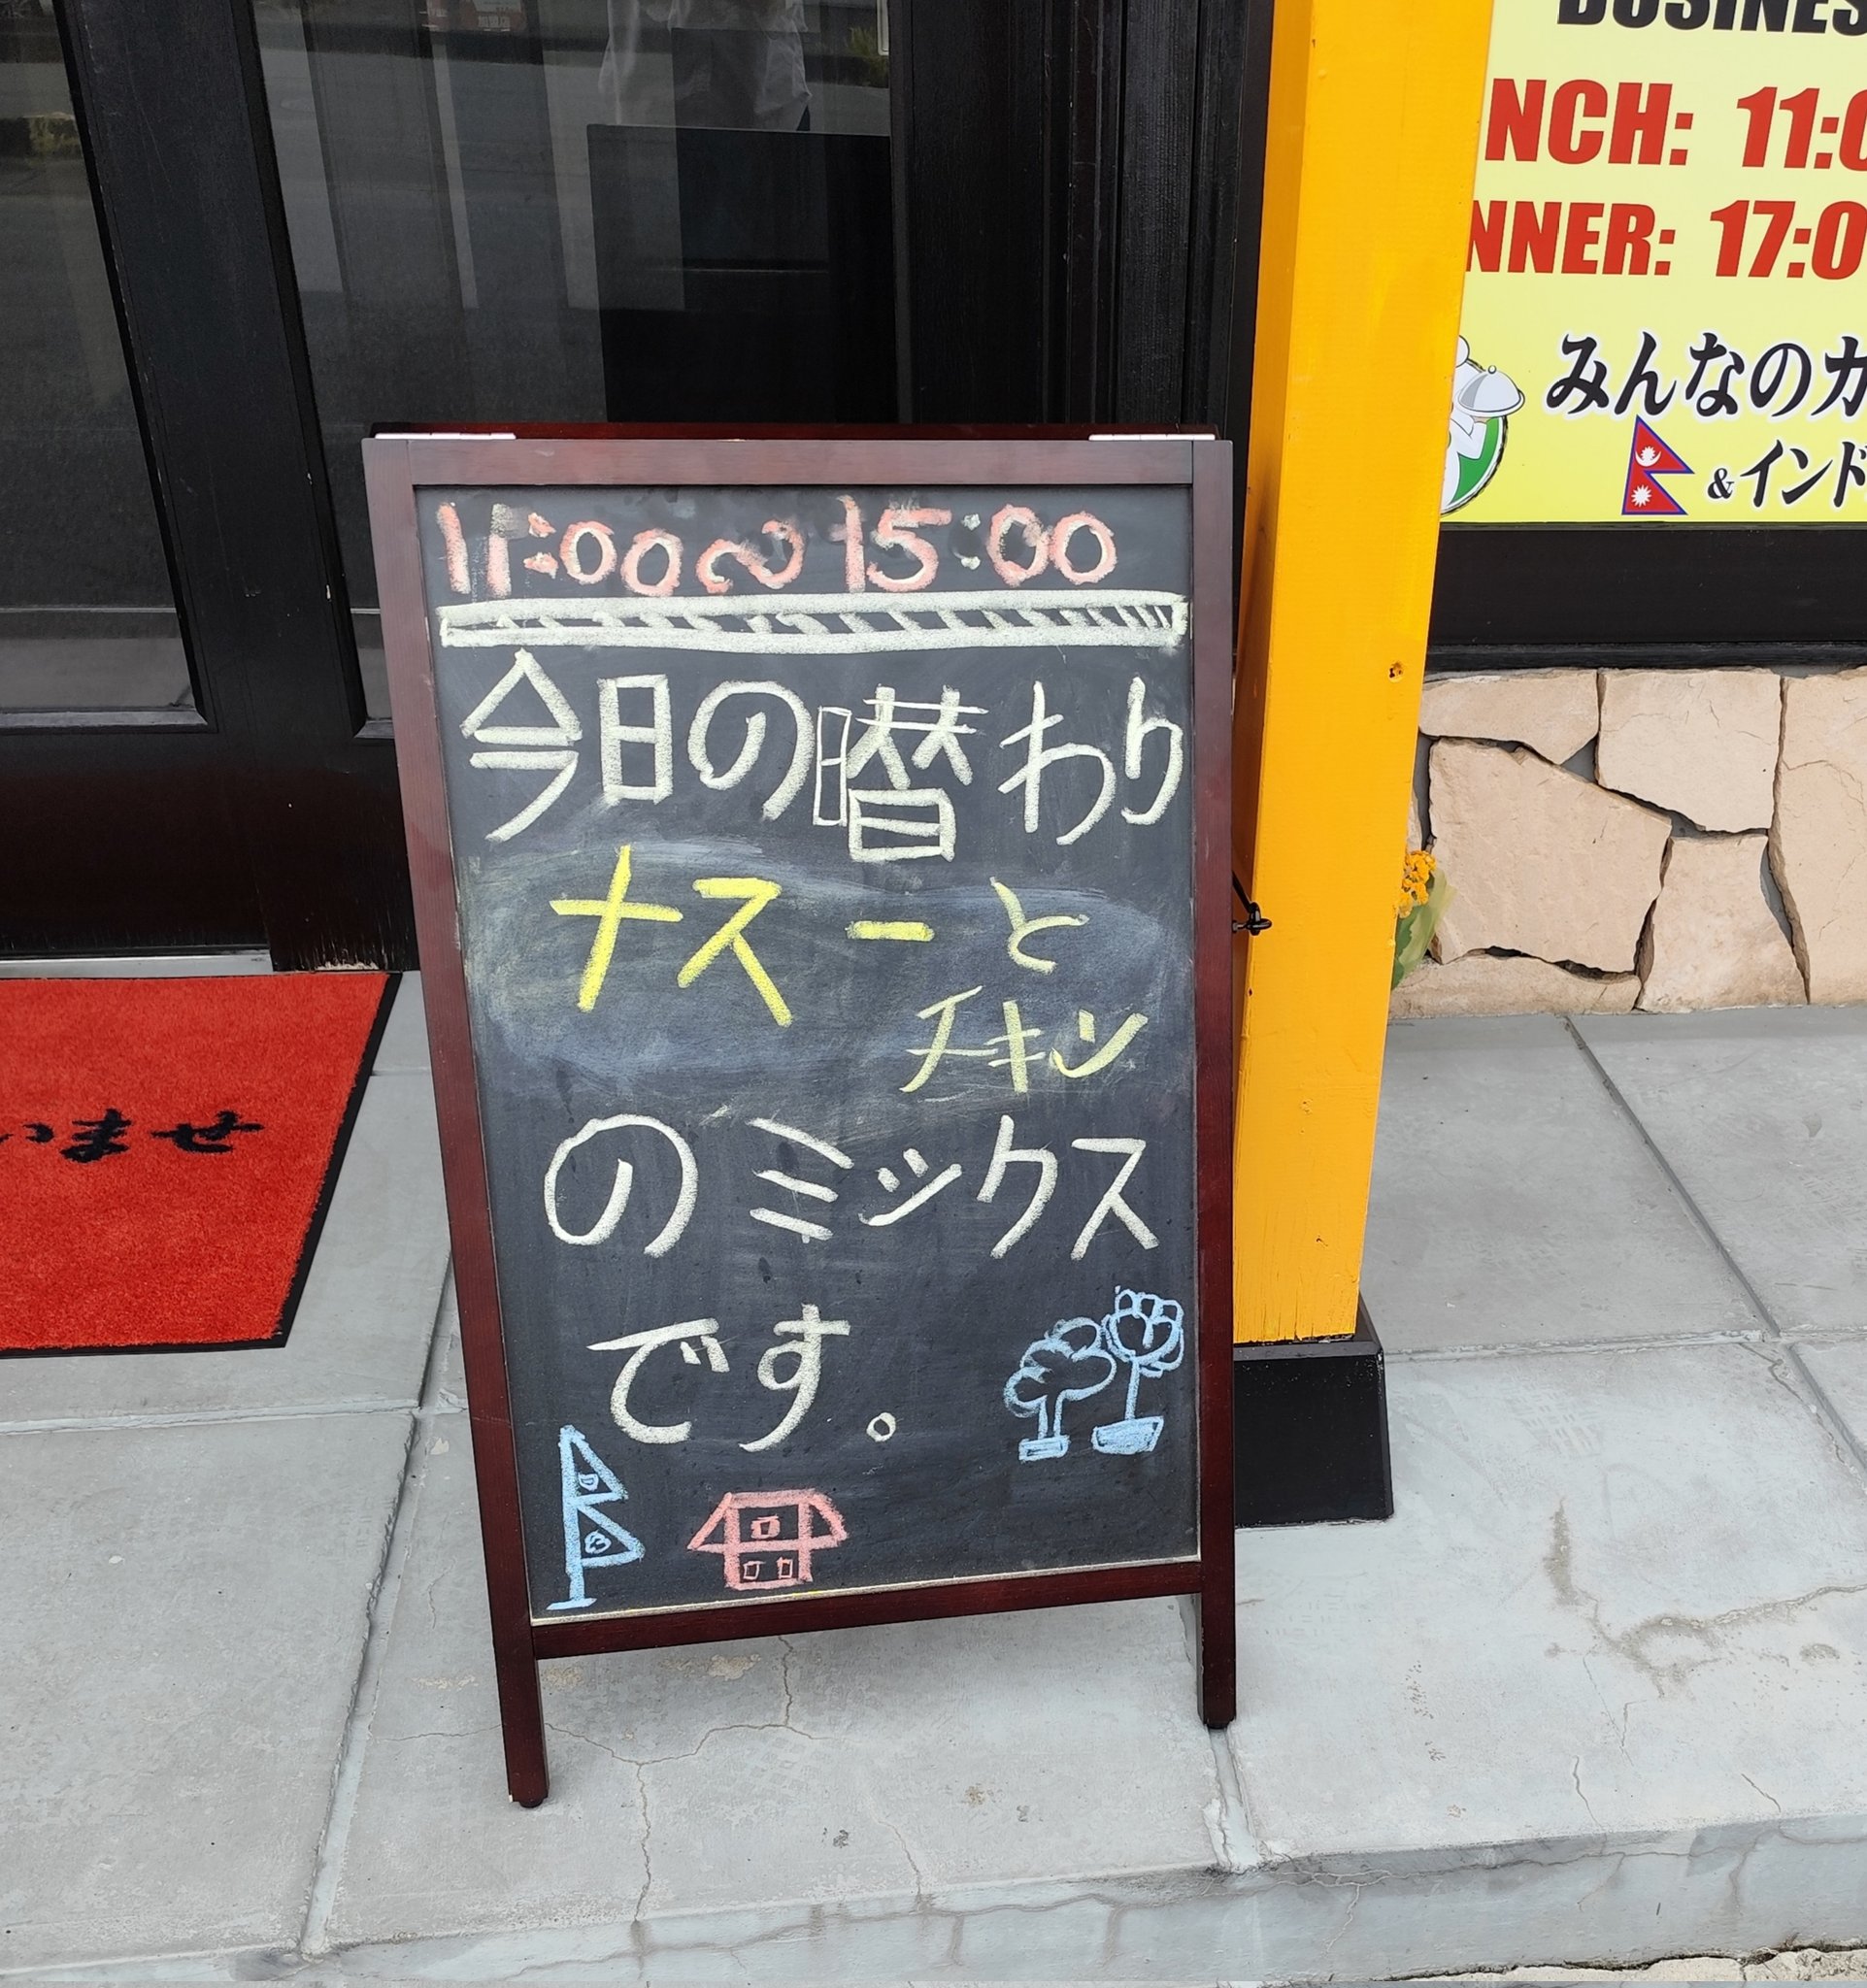 11:00～15:00
今日の日替わり
ナスーと
チキン
のミックス
です。
BUSINES
NCH: 11:0
NNER: 17:0
みんなのカ
&インド
いませ